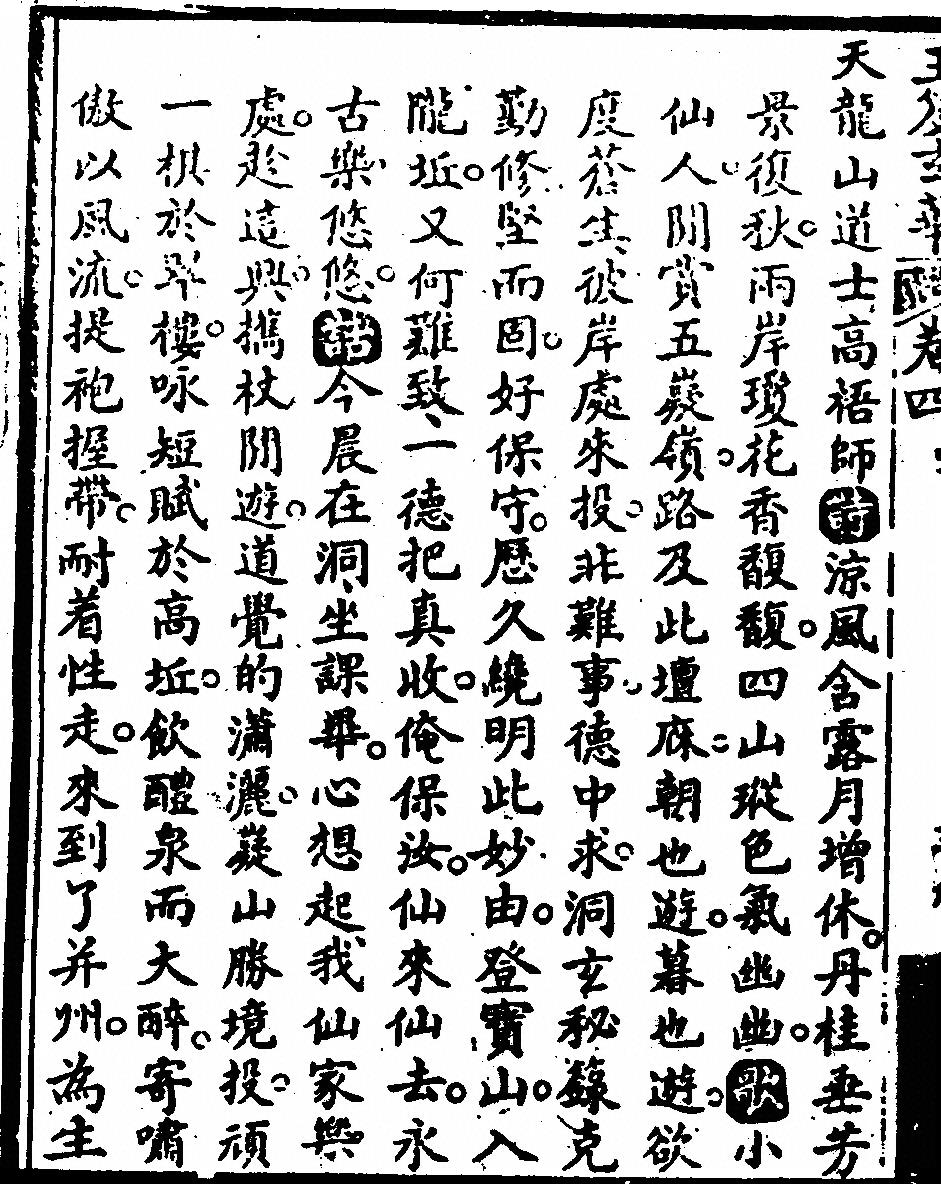 天龍山道士高梧師詩涼風含露月增休。丹桂垂芳
景復秋。兩岸瓊花香馥馥。四山瑽色氣幽幽。歌小
仙人。閒賞五嶽嶺。路及此壇庥。朝也遊。暮也遊。欲
度蒼生、彼岸處來投。非難事。德中求。洞玄秘籙克
勤修。堅而固。好保守。歷久纔明此妙由。登寶山。入
隴坵。又何難致、一德把真收。俺保汝。仙來仙去。永
古樂悠悠。話今晨在洞、坐課畢。心想起我仙家樂
處。趁這興。攜杖閒遊。道覺的瀟灑。凝山勝境投。頑
一棋於翠樓。咏短賦於高坵。飲醴泉而大醉。寄嘯
傲以風流。提袍握帶。耐着性走。來到了并州。為生